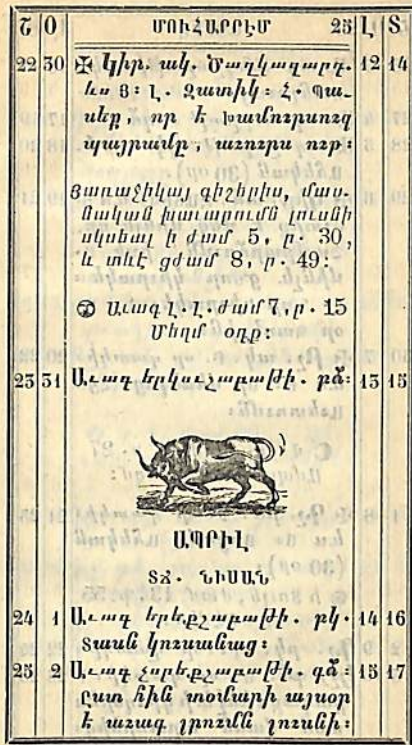 Շ Օ ՄՈՒՀԱՐՐԷՄ 25 Լ Տ
22 30 ✠ Կիր. ակ. Ծաղկազարդ. 12 14
ևս Յ։ Լ. Զատիկ։ Հ. Պա-
սեք, որ է խամուրսուզ
պայրամը, առուրս ուր։
Յառաջիկայ գիշերիս, մաս-
նական խաւարումն լուսնի
սկսեալ ի ժամ 5, ր. 30,
և տևէ ցժամ 8, ր. 49։
Աւագ Լ. Լ. ժամ 7, ր. 15
Մեղմ օդք։
23 31 Աւագ երկուշաբաթի. բձ։ 13 15
ԱՊՐԻԼ
ՏՃ. ՆԻՍԱՆ
24 1 Աւագ երեքշաբաթի. բկ. 14 16
Տասն կուսանաց։
25 2 Աւագ չորեքշաբաթի. գձ։ 15 17
Ըստ հին տօմարի այսօր
է առագ լրումն լուսնի։